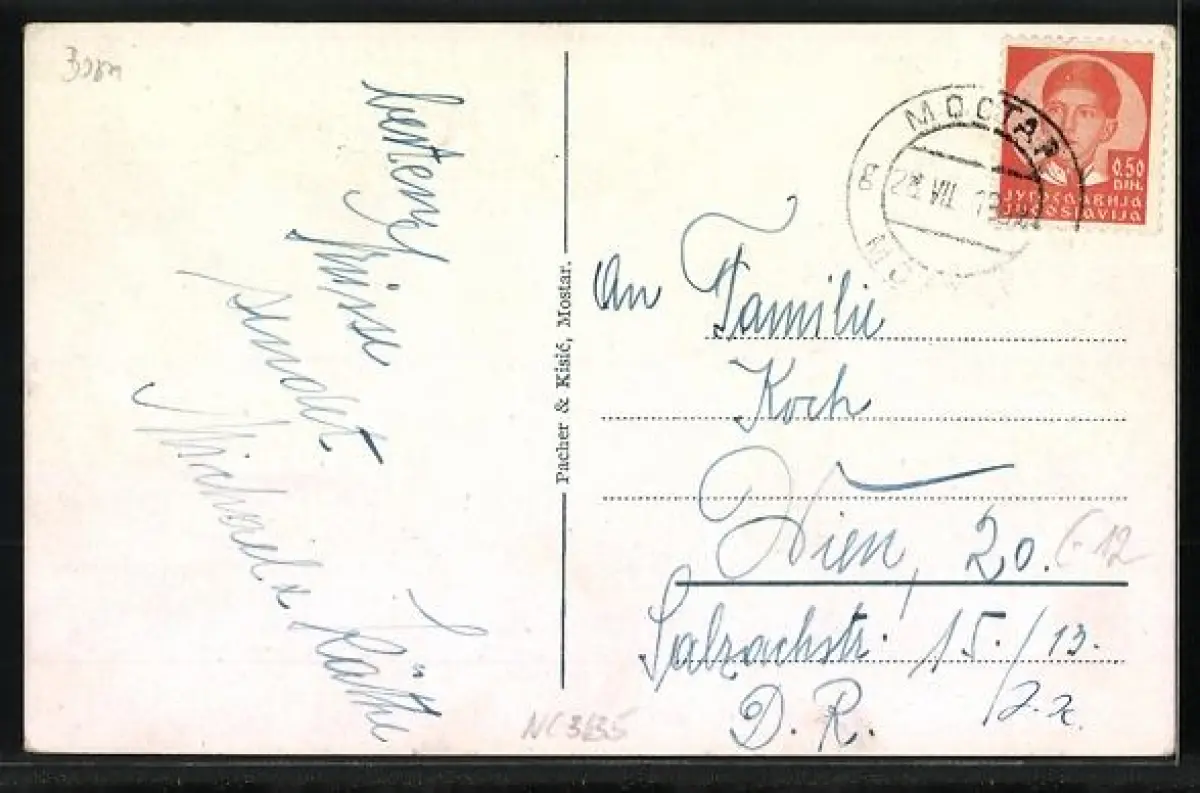 besten
Grüsse
sendet
Michael u. Käthe
Pacher & Kisić, Mostar.
МОСТАР
VII
0.50
DIN.
ЈУГОСЛАВИЈА
JUGOSLAVIJA
An Familie
Koch
Wien, 20.
Salzachstr. 15./13.
D. R.
NC3135